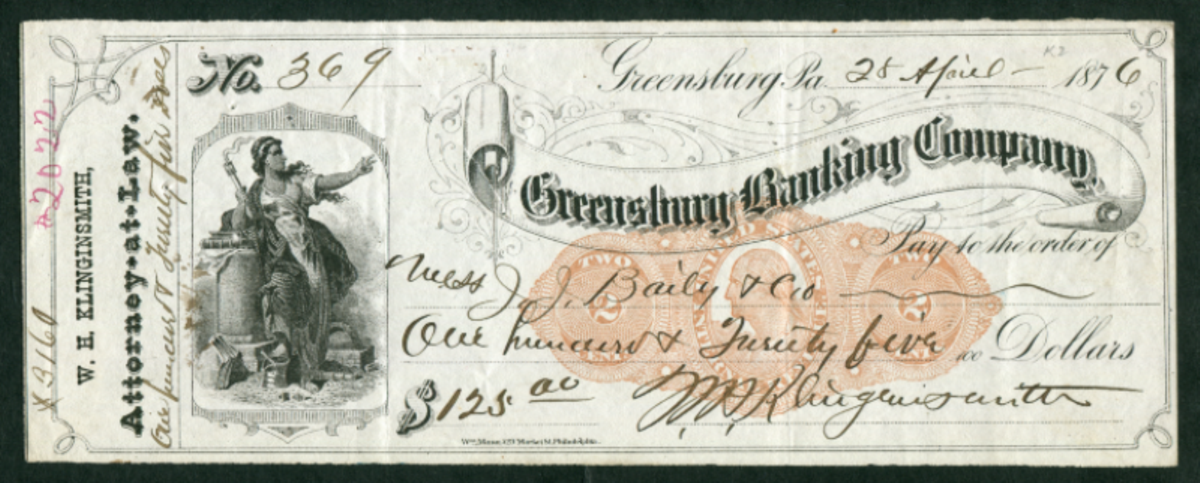 No. 369
Greensburg Pa. 28 April 1876
Greensburg Banking Company,
Pay to the order of
Mess J. J. Baily & Co
One hundred & Twenty five 00 Dollars
$125.00
W. H. Klingensmith
W. H. KLINGINSMITH,
Attorney-at-Law.
One hundred & Twenty five
42022
X3160
UNITED STATES
TWO
2
TWO
2